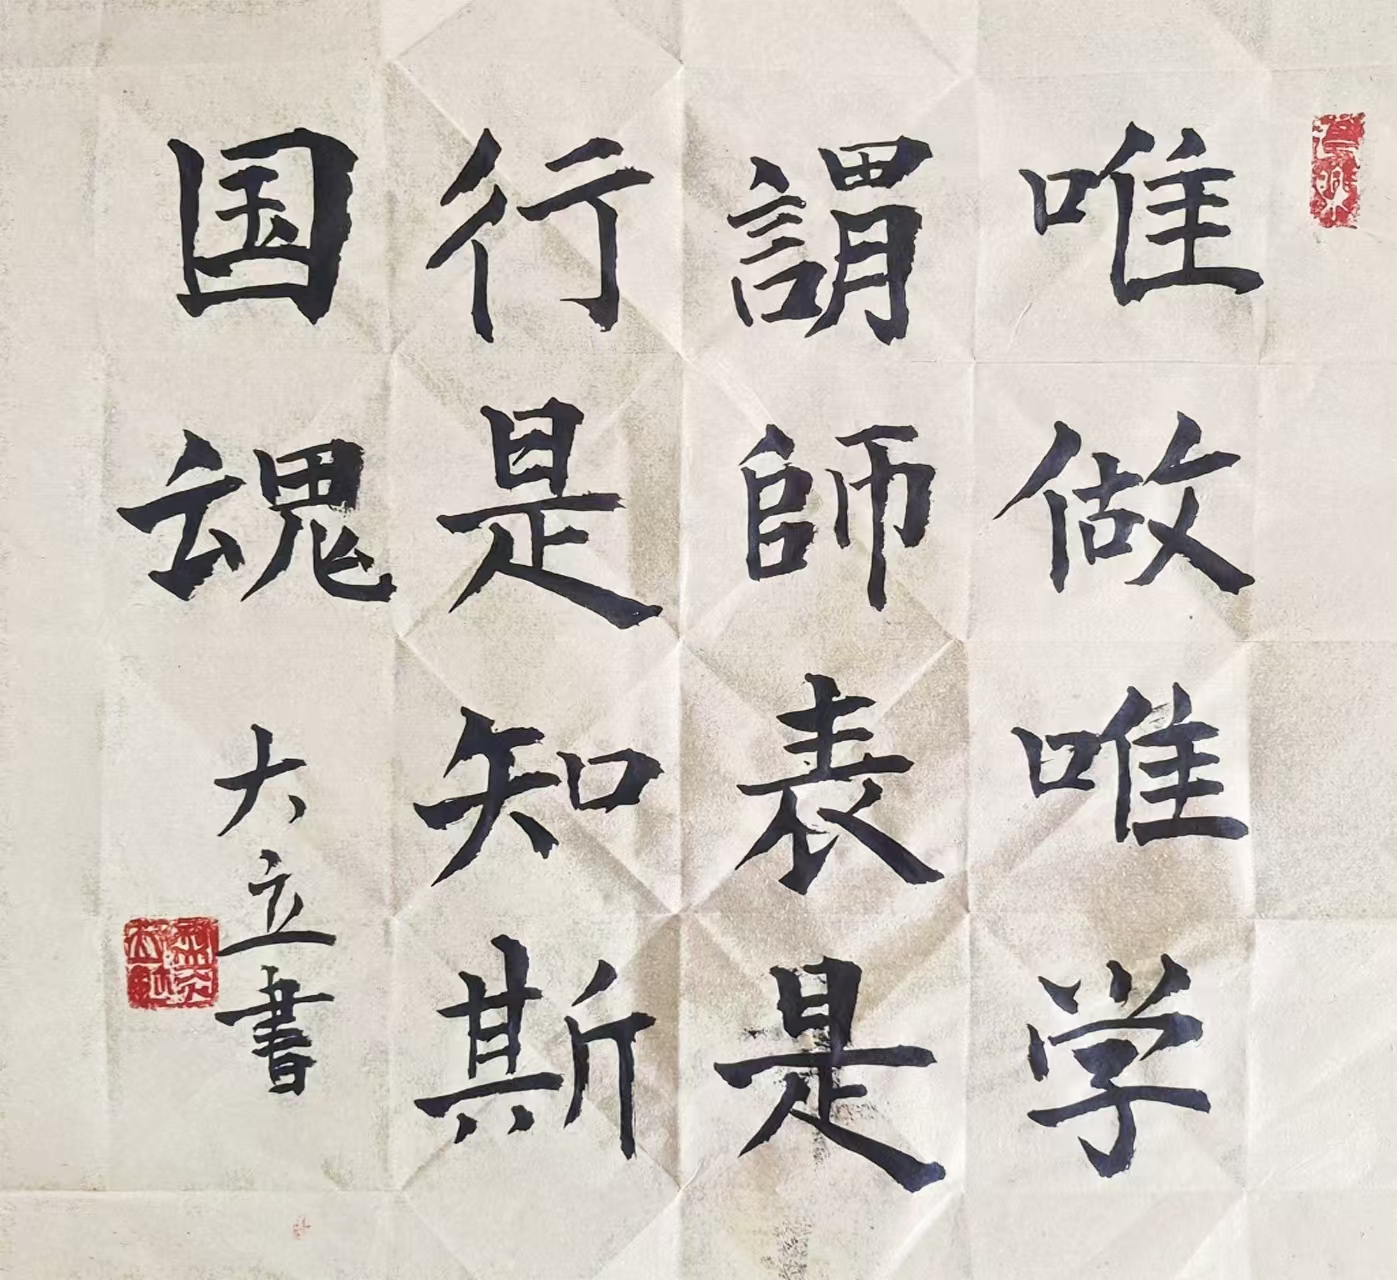 唯做唯学
謂師表是
行是知斯
国魂
大立書